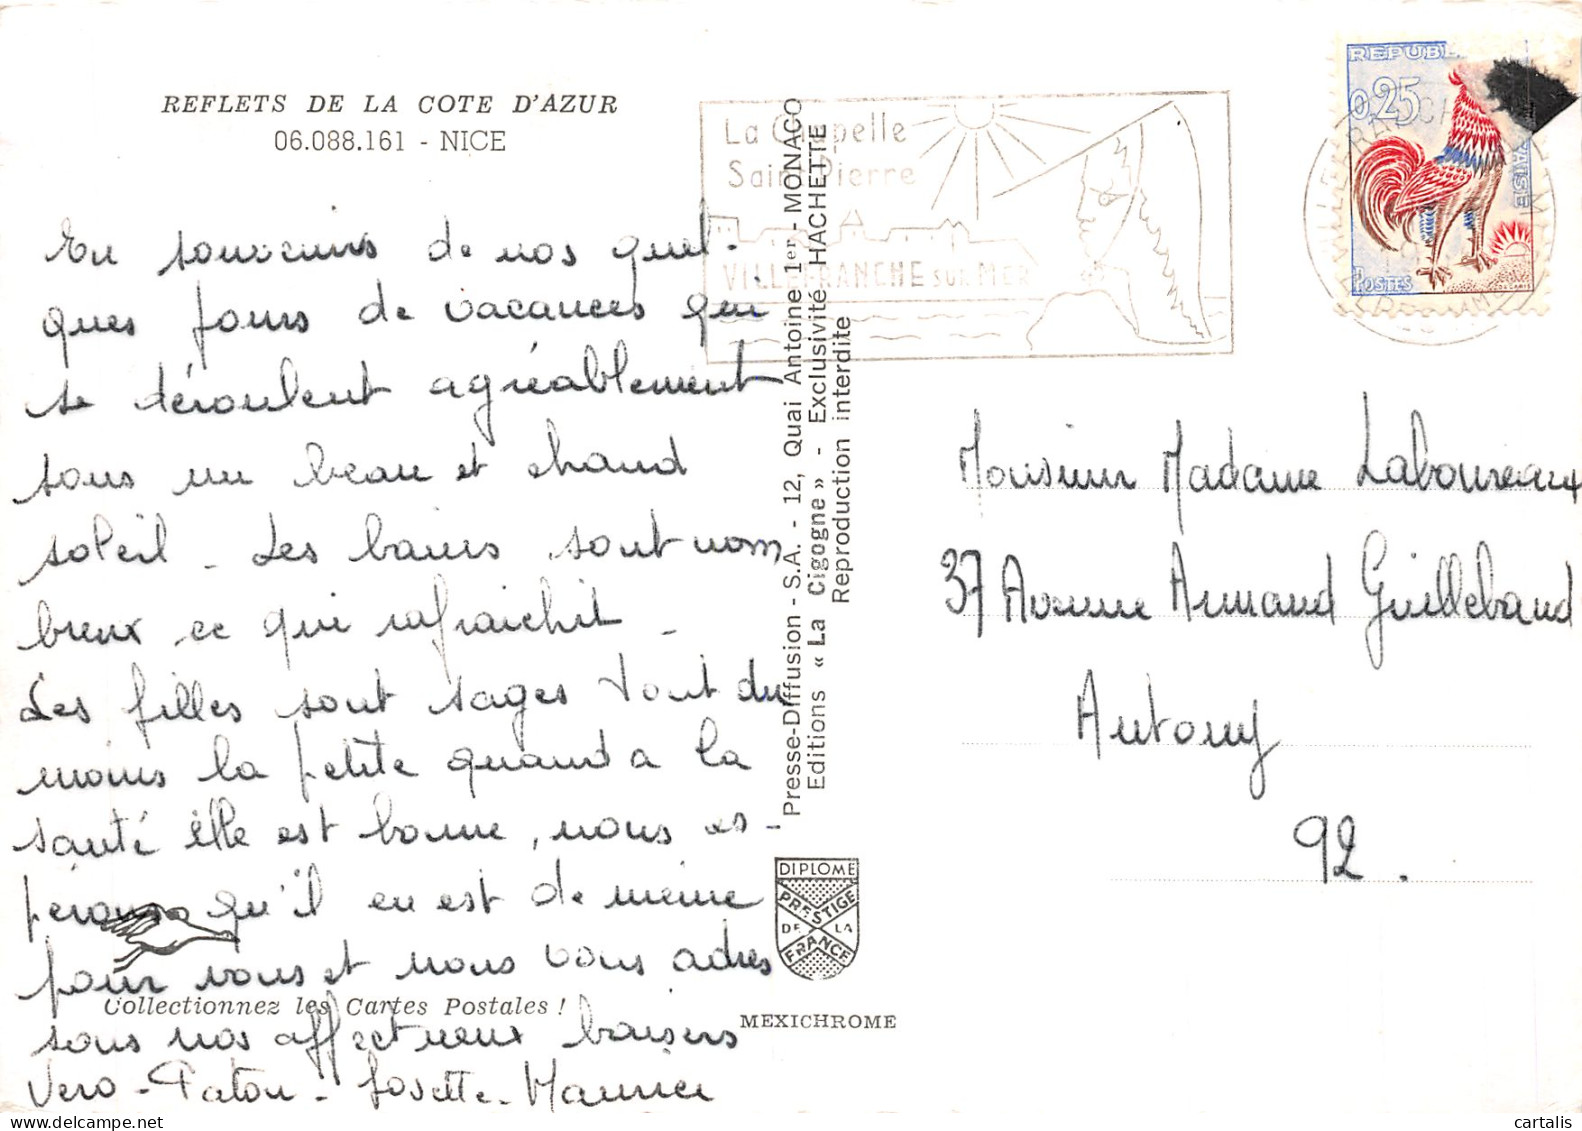 REFLETS DE LA COTE D'AZUR
06.088.161 - NICE
En souvenirs de nos quel-
ques jours de vacances qui
se déroulent agréablement
sous un beau et chaud
soleil - Les bains sont nom
breux ce qui rafraichit -
Les filles sont sages tout du
moins la petite quand a la
santé elle est bonne, nous es-
pérons qu'il en est de même
pour vous et nous vous adres
sons nos affectueux baisers
Vero - Paton - Josette - Maurice
Collectionnez les Cartes Postales !
Presse-Diffusion - S.A. - 12, Quai Antoine 1er - MONACO
Editions « La Cigogne » - Exclusivité HACHETTE
Reproduction interdite
DIPLOME
PRESTIGE
DE LA
FRANCE
MEXICHROME
La Chapelle
Saint Pierre
VILLEFRANCHE SUR MER
REPUBL
0,25
POSTES
Monsieur Madame Laboureaux
37 Avenue Armand Guillebaud
Antony
92.
cartalis